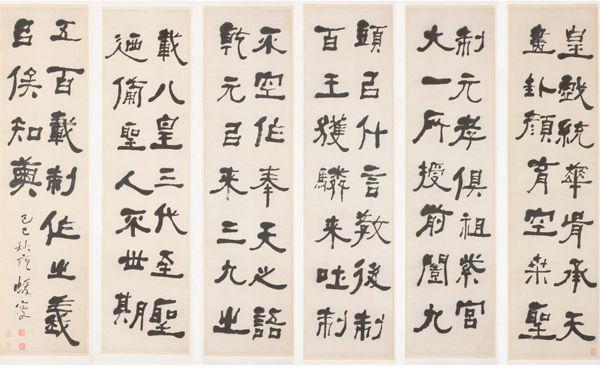 皇戲統華胥承天
畫卦顏育空桒聖
制元孝俱祖紫宮
大一所授前闓九
頭㠯什言敎後制
百王獲驎來吐制
不空作奉天之語
乾元㠯來三九之
載八皇三代至聖
廼備聖人不世期
五百載制作之義
㠯俟知奧
己巳秋 蝯叟